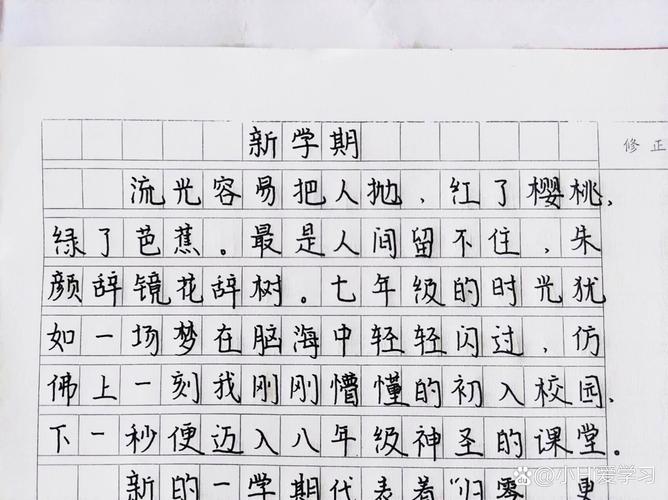 新学期
修正
流光容易把人抛,红了樱桃,
绿了芭蕉。最是人间留不住,朱
颜辞镜花辞树。七年级的时光犹
如一场梦在脑海中轻轻闪过,仿
佛上一刻我刚刚懵懂的初入校园,
下一秒便迈入八年级神圣的课堂。
新的一学期代表着“归零”更
小甘爱学习